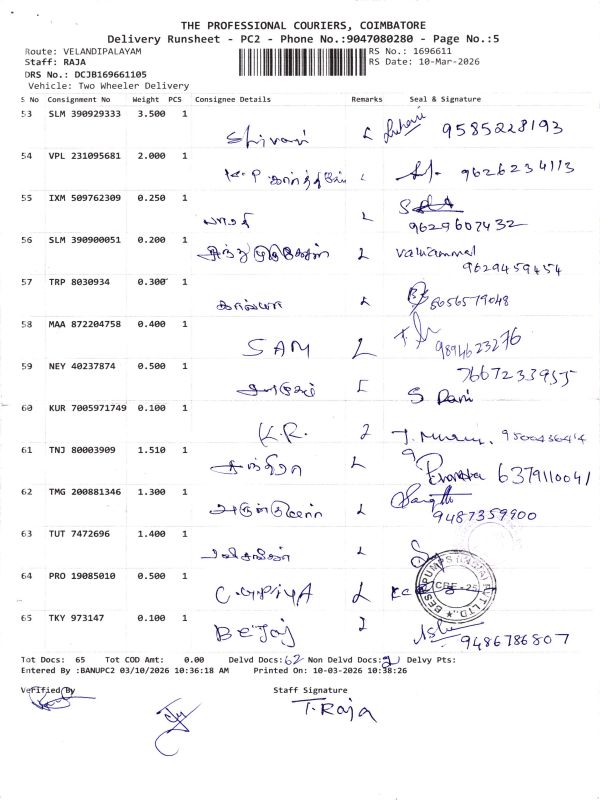 THE PROFESSIONAL COURIERS, COIMBATORE
Delivery Runsheet - PC2 - Phone No.:9047080280 - Page No.:5
Route: VELANDIPALAYAM RS No.: 1696611
Staff: RAJA RS Date: 10-Mar-2026
DRS No.: DCJB169661105
Vehicle: Two Wheeler Delivery
S No Consignment No Weight PCS Consignee Details Remarks Seal & Signature
53 SLM 390929333 3.500 1 Shivani L 9585228193
54 VPL 231095681 2.000 1 K.P கார்த்திகேய L 9626234113
55 IXM 509762309 0.250 1 L 9629607432
56 SLM 390900051 0.200 1 L Valliammal
9629459454
57 TRP 8030934 0.300 1 காவ்யா L 8056579048
58 MAA 872204758 0.400 1 SAM L 9894623276
59 NEY 40237874 0.500 1 7667233955
S Rani
60 KUR 7005971749 0.100 1 K.R. 9500436414
61 TNJ 80003909 1.510 1 L 6379110041
62 TMG 200881346 1.300 1 L Sangith
9487359900
63 TUT 7472696 1.400 1 L
64 PRO 19085010 0.500 1 L
BEST PUMPS (INDIA) PVT LTD.
CBE - 25
65 TKY 973147 0.100 1 BEJOJ 9486786807
Tot Docs: 65 Tot COD Amt: 0.00 Delvd Docs: 62 Non Delvd Docs: Delvy Pts:
Entered By :BANUPC2 03/10/2026 10:36:18 AM Printed On: 10-03-2026 10:38:26
Verified By Staff Signature
T.Raja